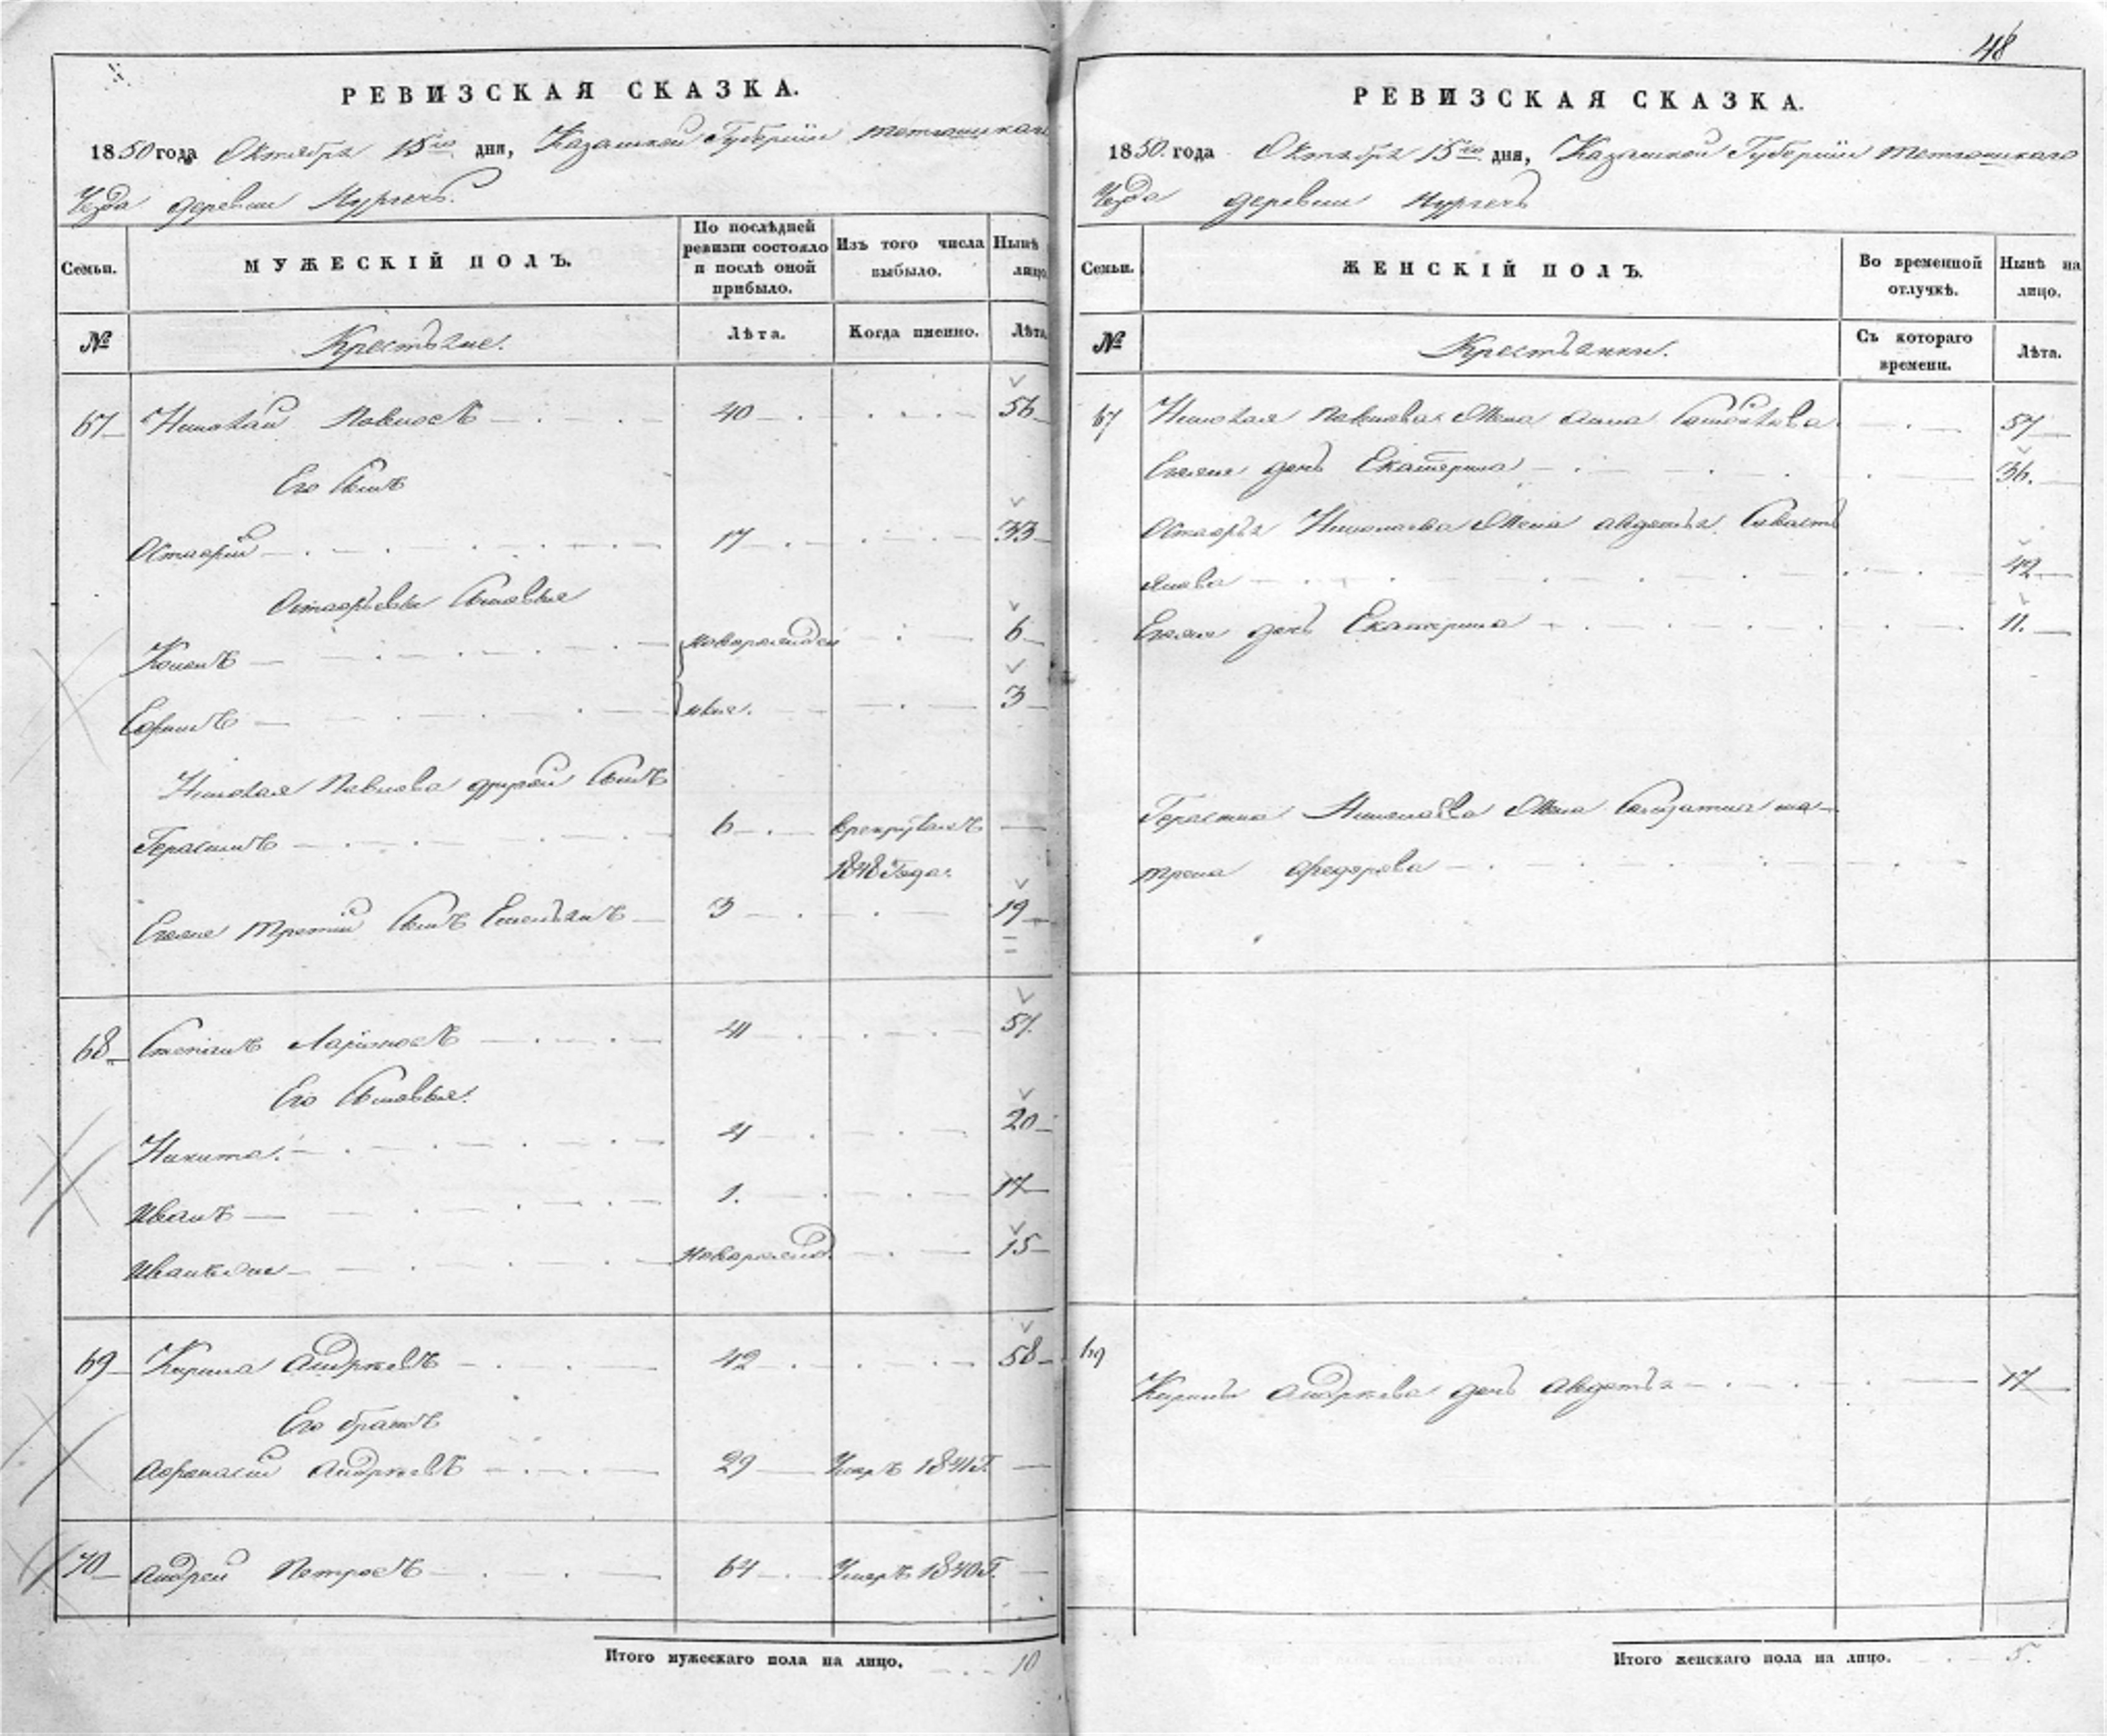 РЕВИЗСКАЯ СКАЗКА.
1850 года Октября 15го дня, Казанской Губернiи Тетюшскаго
Уезда деревни
Семьи.
МУЖЕСКІЙ ПОЛЪ.
По послѣдней ревизіи состояло и послѣ оной прибыло.
Изъ того числа выбыло.
Нынѣ лицо
№
Крестьяне.
Лѣта.
Когда именно.
Лѣта
67 Николай Павловъ 40 56
Его Сынъ
17 33
Сыновья
новорожден 6
Ефимъ ные. 3
Николая Павлова другой Сынъ
Герасимъ 6 врекруты
1848 Года.
Егоже третiй Сынъ Емельянъ 3 19
68 Степанъ Ларiоновъ 41 57.
Его Сыновья.
Никита. 4 20
Иванъ 1. 17
новорожд. 15
69 Кирила Андреевъ 42 58
Его братъ
Афанасiй Андреевъ 29 Умеръ 1841 Г.
70 Андрей Петровъ 64 Умеръ 1840 Г.
Итого мужескаго пола на лицо. 10
48
РЕВИЗСКАЯ СКАЗКА.
1850. года Октября 15го дня, Казанской Губернiи Тетюшскаго
Уезда деревни
Семьи.
ЖЕНСКІЙ ПОЛЪ.
Во временной отлучкѣ.
Нынѣ на лицо.
№
Крестьянки.
Съ котораго времени.
Лѣта.
67 Николая Павлова Жена Анна 57
Егоже дочь Екатерина 36.
Николаева Жена Авдотья Севасть
янова 42
Егоже дочь Екатерина 11.
Герасима Николаева Жена Солдатка Ма-
трена Федорова
69
Кирилы Андреева дочь Авдотья 17
Итого женскаго пола на лицо. 5.